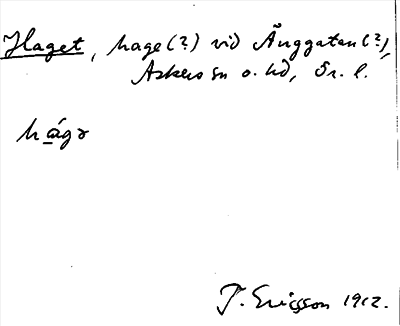 Haget, hage(?) vid Änggatan(?),
Askers sn o. hd, Ör. l.
hágə
T. Ericsson 1912.